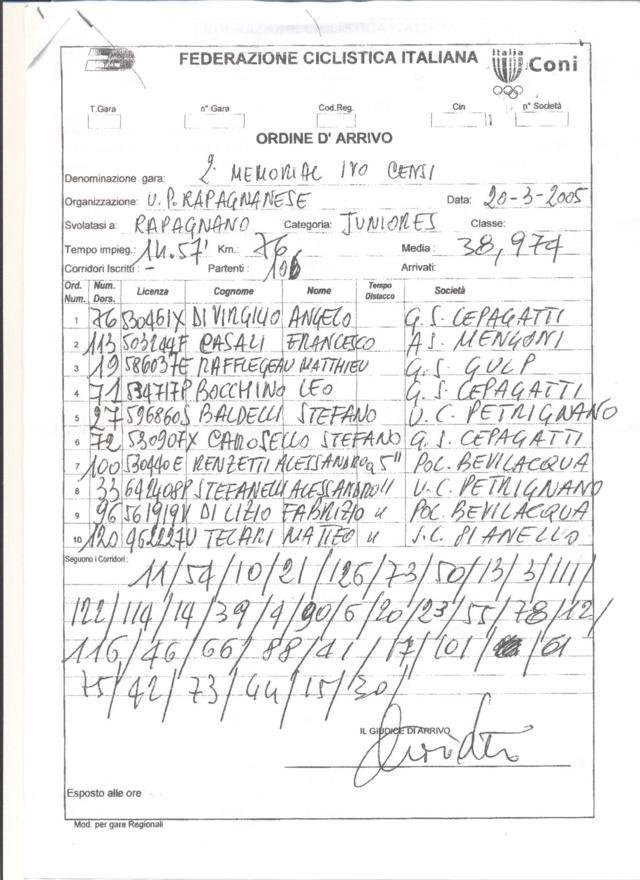 FEDERAZIONE CICLISTICA ITALIANA
Italia
Coni
T.Gara n° Gara Cod.Reg. Cin n° Società
ORDINE D' ARRIVO
Denominazione gara: 2° MEMORIAL IVO CENSI
Organizzazione: U.P. RAPAGNANESE Data: 20-3-2005
Svolatasi a: RAPAGNANO Categoria: JUNIORES Classe:
Tempo impieg.: 1h.57' Km.: 76 Media: 38,974
Corridori Iscritti: - Partenti: 106 Arrivati:
Ord. Num. Num. Dors. Licenza Cognome Nome Tempo Distacco Società
1 76 530461X DI VIRGILIO ANGELO G.S. CEPAGATTI
2 113 503244F CASALI FRANCESCO A.S. MENGONI
3 19 586037E RAFFLEGEAU MATTHIEU G.S. GULP
4 71 534717P BOCCHINO LEO G.S. CEPAGATTI
5 27 596860S BALDELLI STEFANO U.C. PETRIGNANO
6 72 530907X CAROSELLO STEFANO G.S. CEPAGATTI
7 100 530440E RENZETTI ALESSANDRO a 5" POL. BEVILACQUA
8 33 642408P STEFANELLI ALESSANDRO " U.C. PETRIGNANO
9 96 561919V DI LIZIO FABRIZIO " POL. BEVILACQUA
10 120 962227U TECARI MATTEO " S.C. PIANELLO
Seguono i Corridori: 11/54/10/21/126/73/50/13/3/111/
122/114/14/39/4/90/6/20/23/55/78/12/
116/46/66/88/41/17/101/ /61
75/42/73/44/15/30/
IL GIUDICE DI ARRIVO
Esposto alle ore
Mod. per gare Regionali